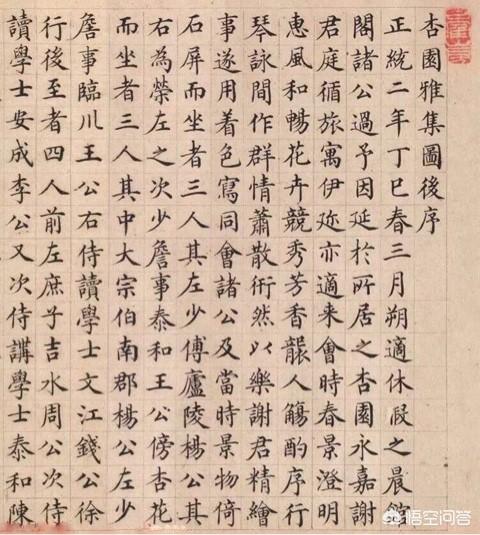 杏園雅集圖後序
正統二年丁巳春三月朔適休假之晨館
閣諸公過予因延於所居之杏園永嘉謝
君庭循旅寓伊邇亦適来會時春景澄明
惠風和暢花卉競秀芳香襲人觴酌序行
琴詠間作群情蕭散衎然以樂謝君精繪
事遂用着色寫同會諸公及當時景物倚
石屏而坐者三人其左少傅廬陵楊公其
右為榮左之次少詹事泰和王公傍杏花
而坐者三人其中大宗伯南郡楊公左少
詹事臨川王公右侍讀學士文江錢公徐
行後至者四人前左庶子吉水周公次侍
讀學士安成李公又次侍講學士泰和陳
悟空问答